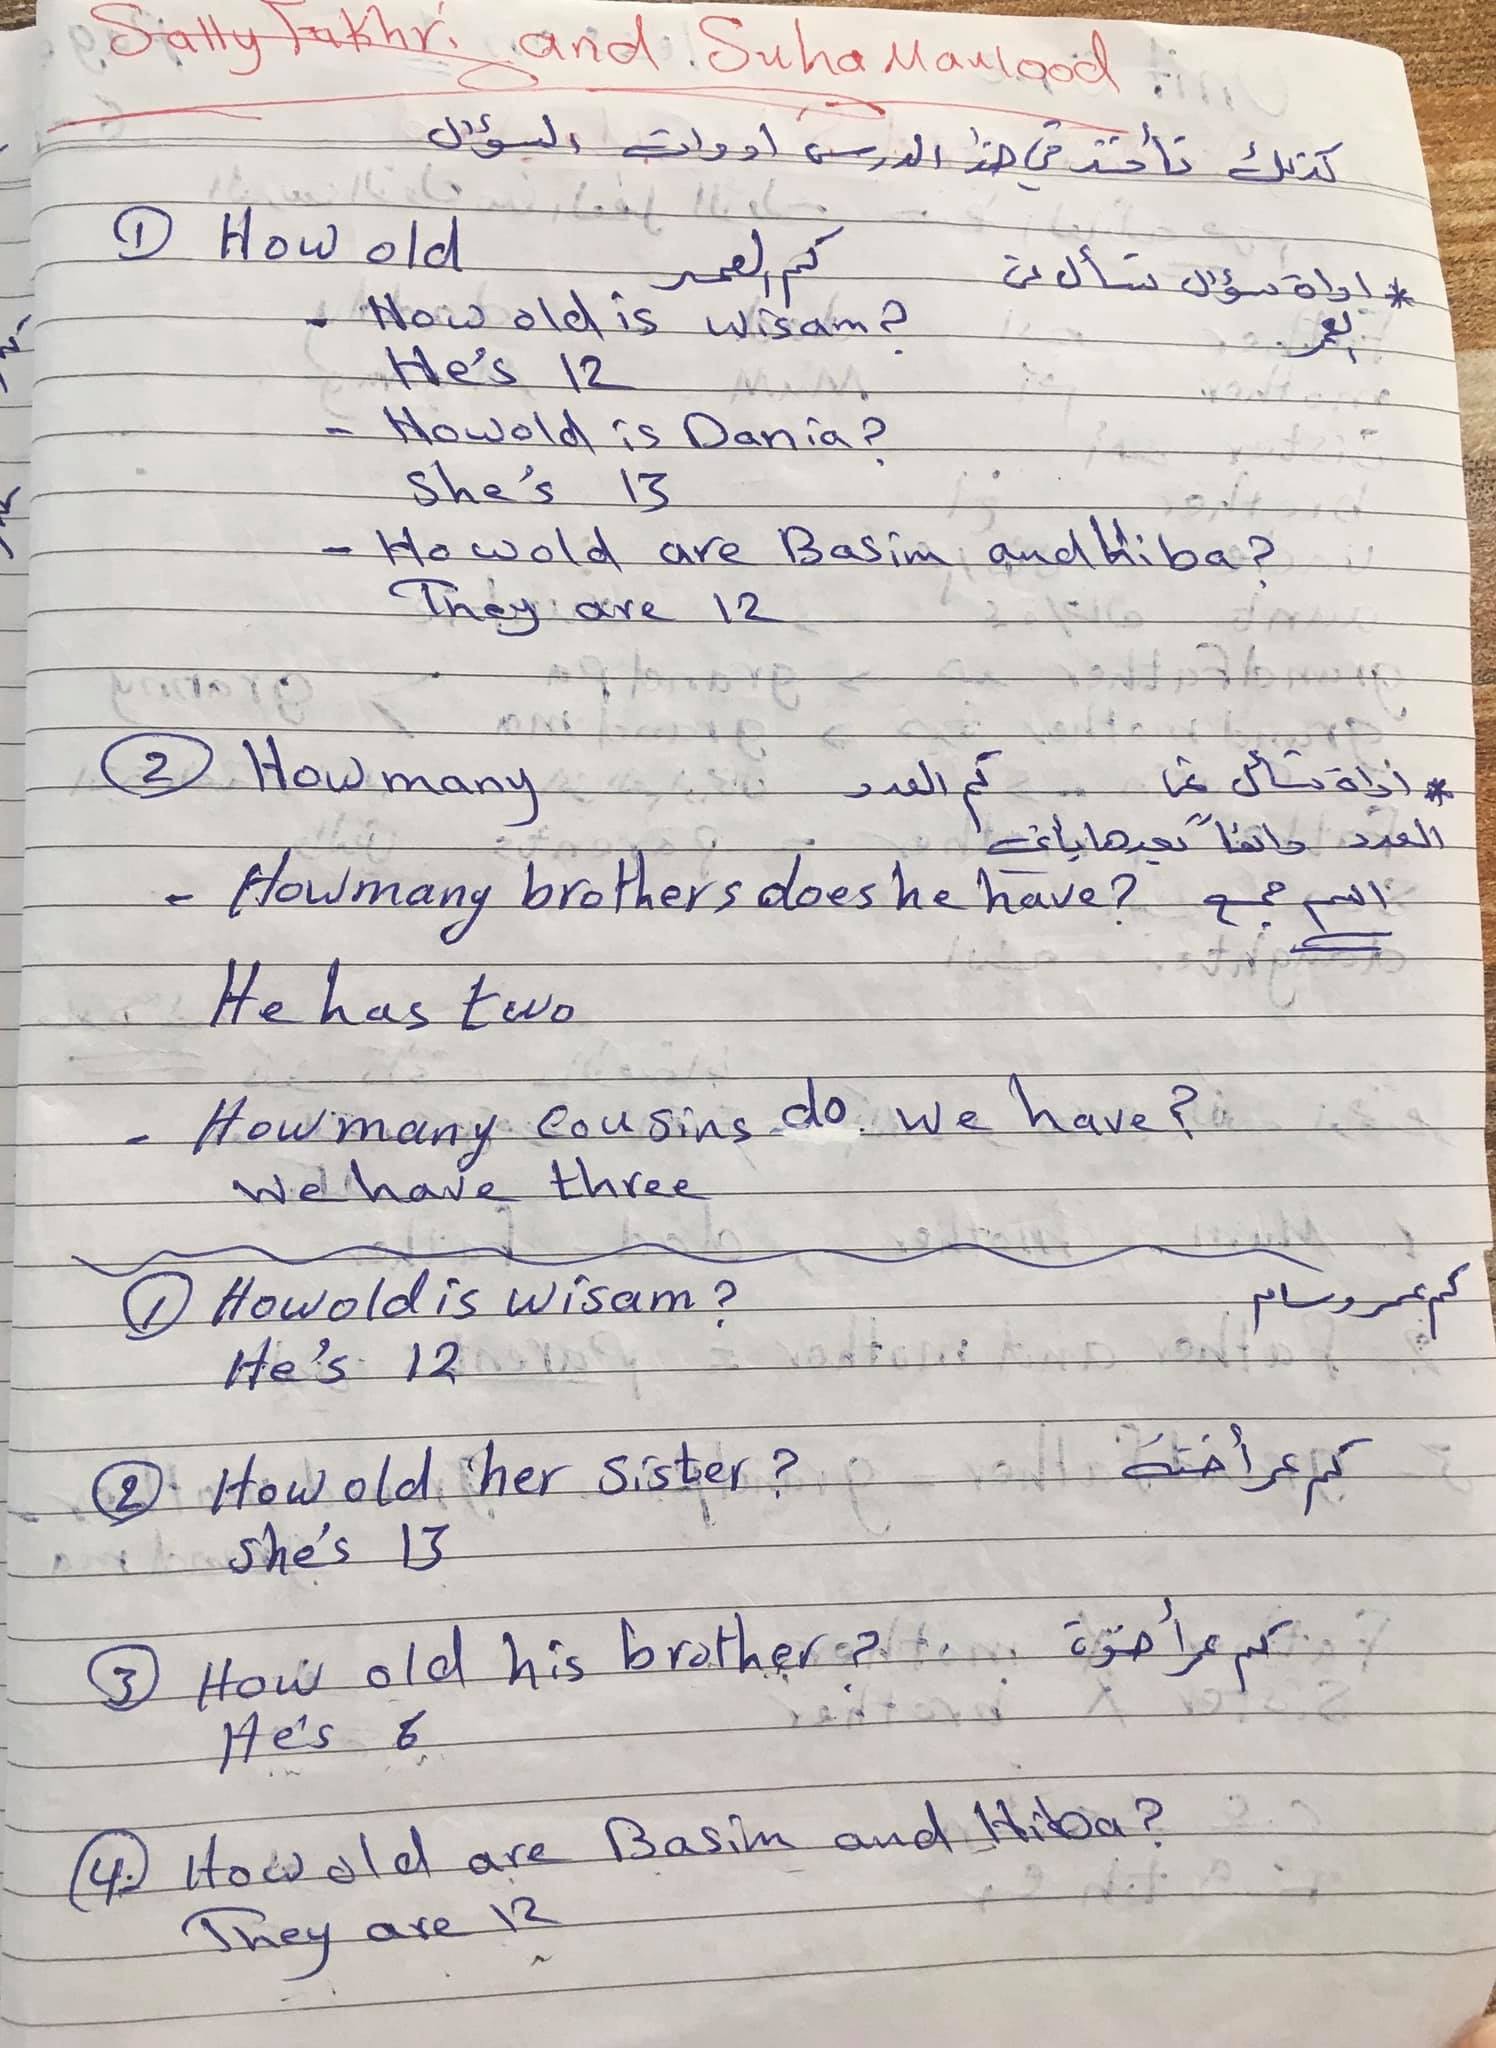 Sally Fakhri and Suha Mawlood
كذلك نأخذ في هذا الدرس ادوات السؤال
① How old كم العمر * اداة سؤال نسأل عن
العمر
- How old is wisam?
He's 12
- How old is Dania?
she's 13
- How old are Basim and Hiba?
They are 12
② How many كم العدد * اداة نسأل عن
العدد دائماً بعدها يأتي
- How many brothers does he have? اسم جمع
He has two
- How many cousins do we have?
we have three
① How old is wisam? كم عمر وسام
He's 12
② How old her sister? كم عمر أخته
she's 13
③ How old his brother? كم عمر أخوة
He's 6
④ How old are Basim and Hiba?
They are 12